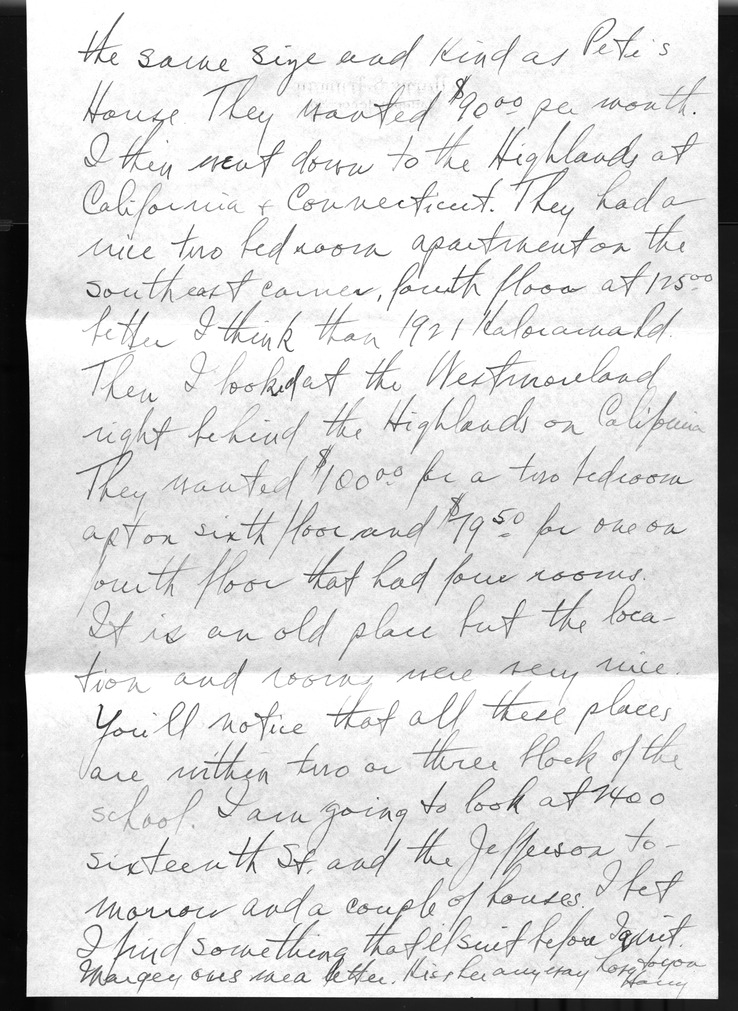 the same size and kind as Pete's
House. They wanted $90.00 per month.
I then went down to the Highlands at
California + Connecticut. They had a
nice two bed room apartment on the
southeast corner, fourth floor at 125.00
better I think than 1921 Kalorama Rd.
Then I looked at the Westmoreland
right behind the Highlands on California
They wanted $100.00 for a two bedroom
apt on sixth floor and $79.50 for one on
fourth floor that had four rooms.
It is an old place but the loca-
tion and rooms were very nice.
You'll notice that all these places
are within two or three block of the
school. I am going to look at 2400
sixteenth St. and the Jefferson to-
morrow and a couple of houses. I bet
I find something that'll suit before I quit.
Margey owes me a letter. Kiss her anyway Love to you
Harry